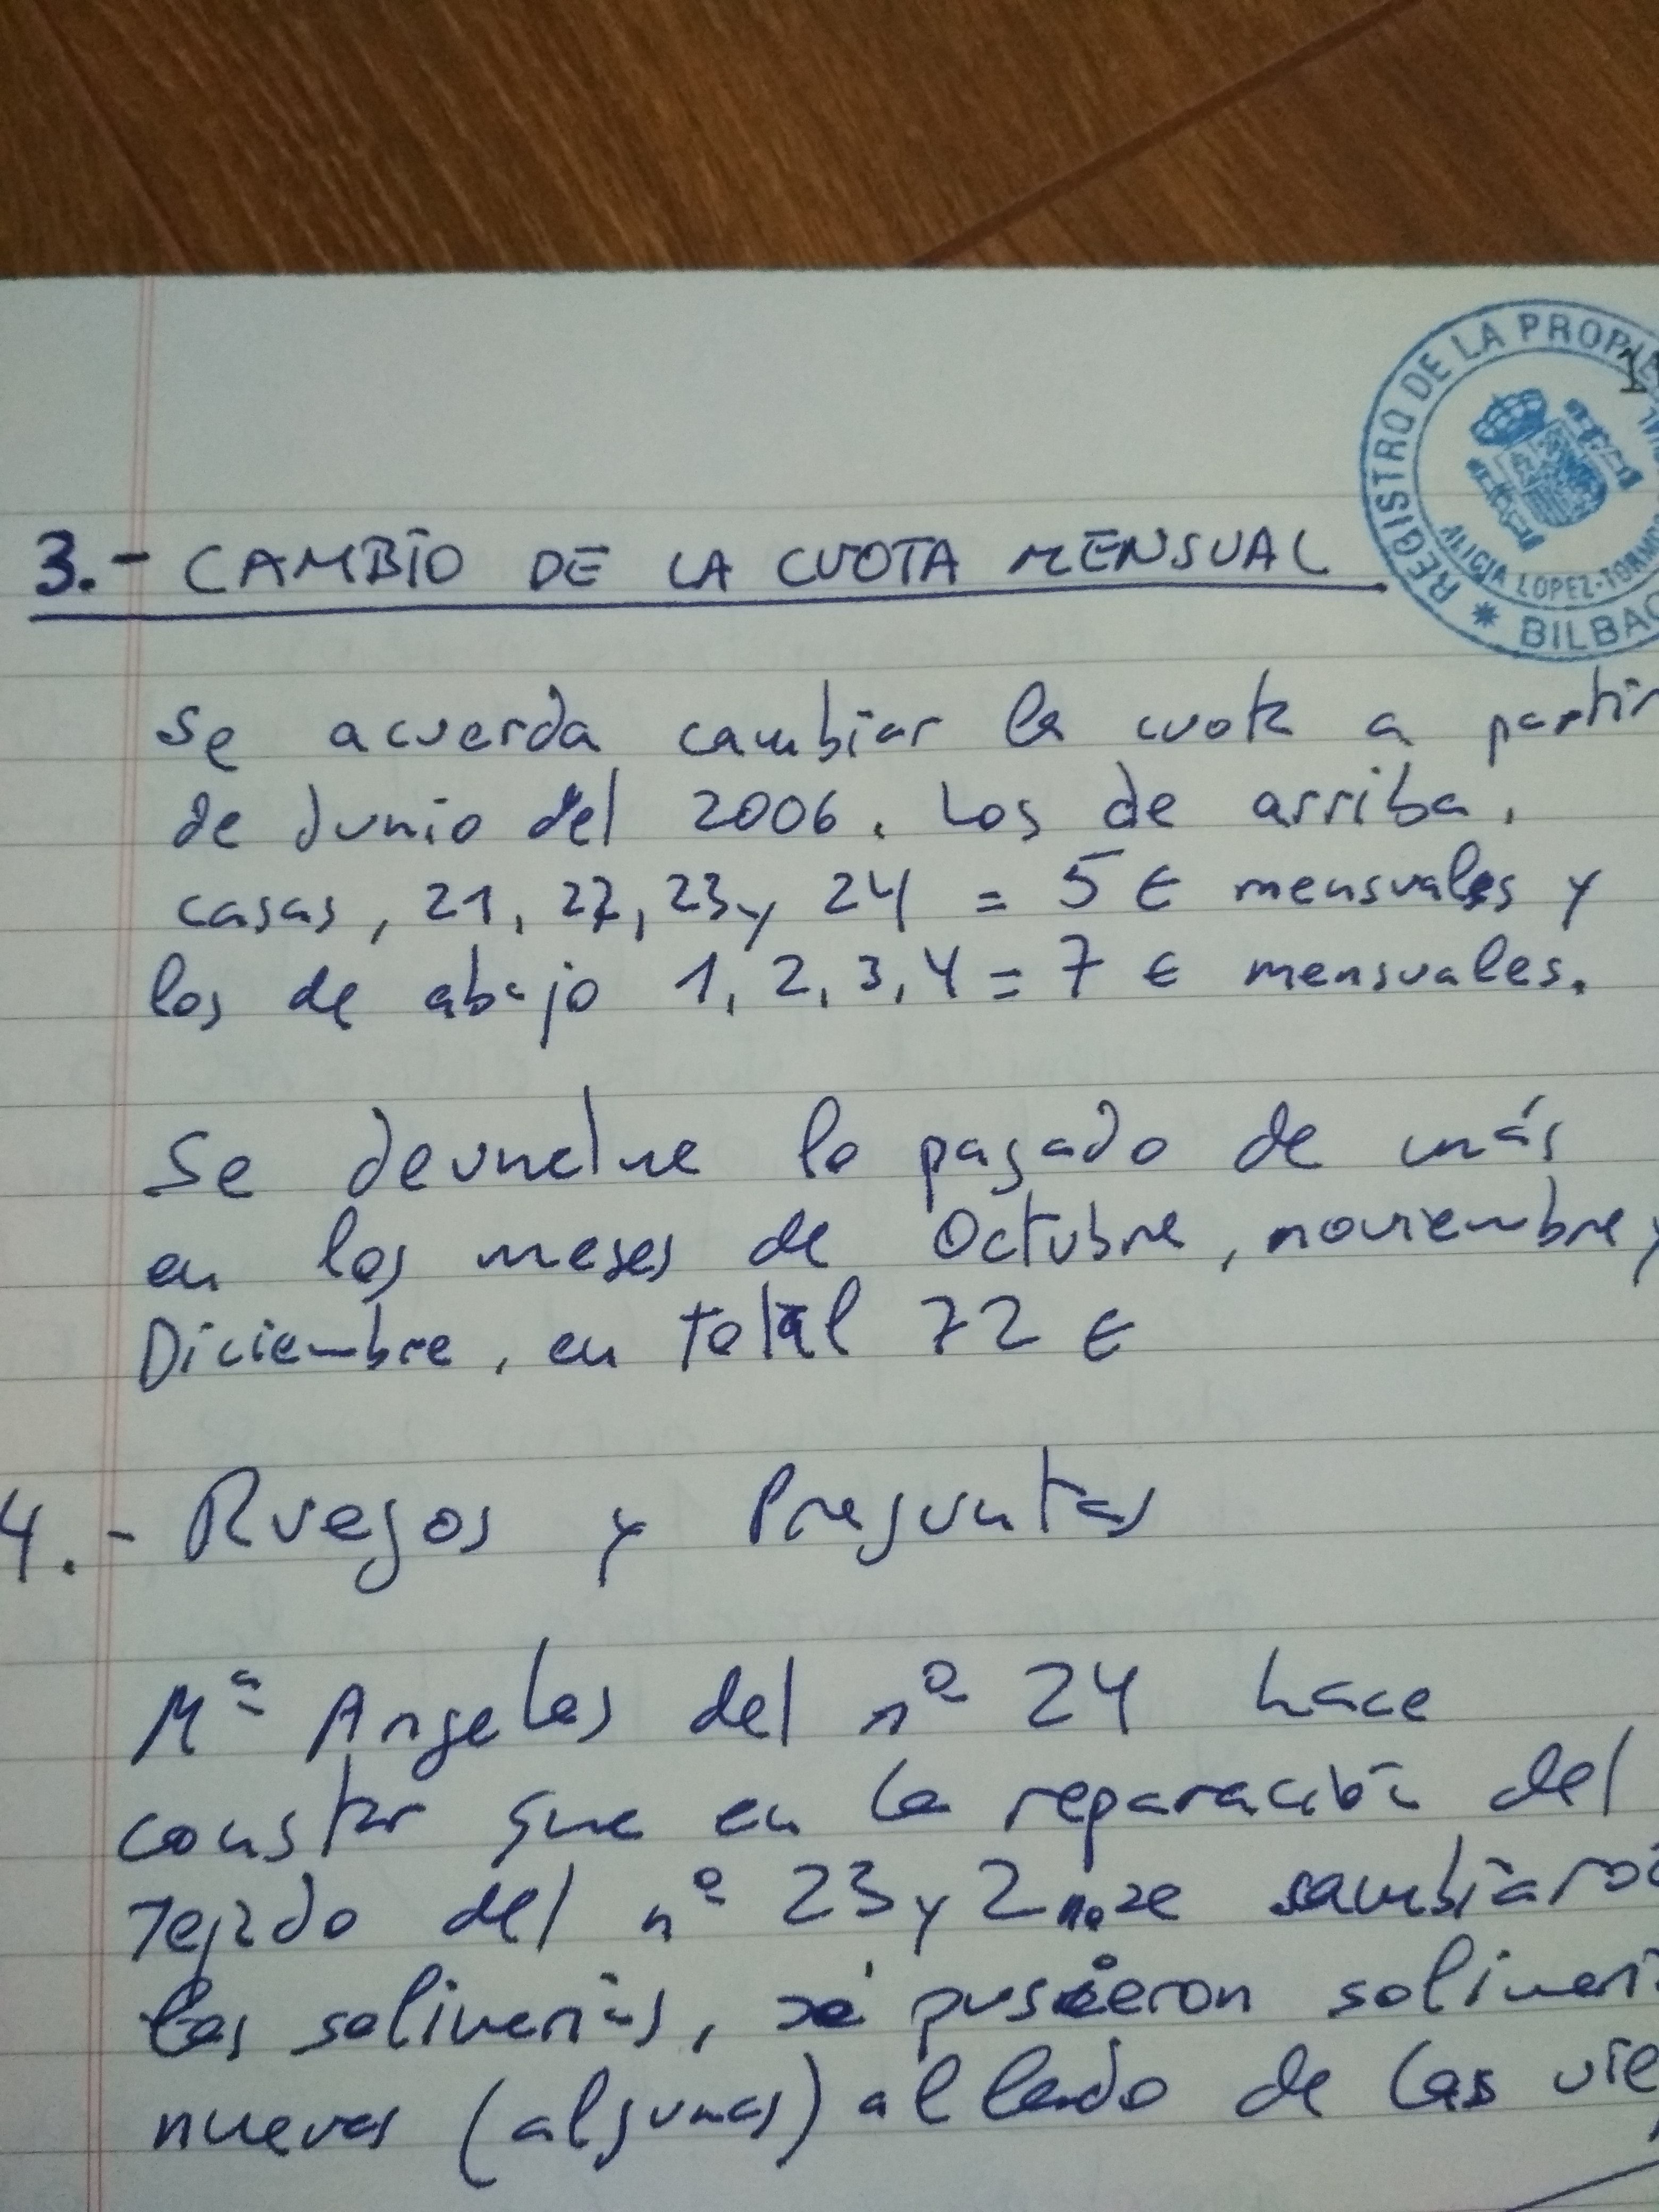 REGISTRO DE LA PROPIE
ALICIA LOPEZ-TORMO
* BILBAO
3.- CAMBIO DE LA CUOTA MENSUAL
Se acuerda cambiar la cuota a partir
de Junio del 2006. Los de arriba,
casas, 21, 22, 23 y 24 = 5 € mensuales y
los de abajo 1, 2, 3, 4 = 7 € mensuales.
Se devuelve lo pagado de más
en los meses de Octubre, noviembre y
Diciembre, en total 72 €
4.- Ruegos y Preguntas
Mª Angeles del nº 24 hace
constar que en la reparación del
Tejado del nº 23 y 2 no se
las, se pusieron
nuevas (algunas) al lado de las vie